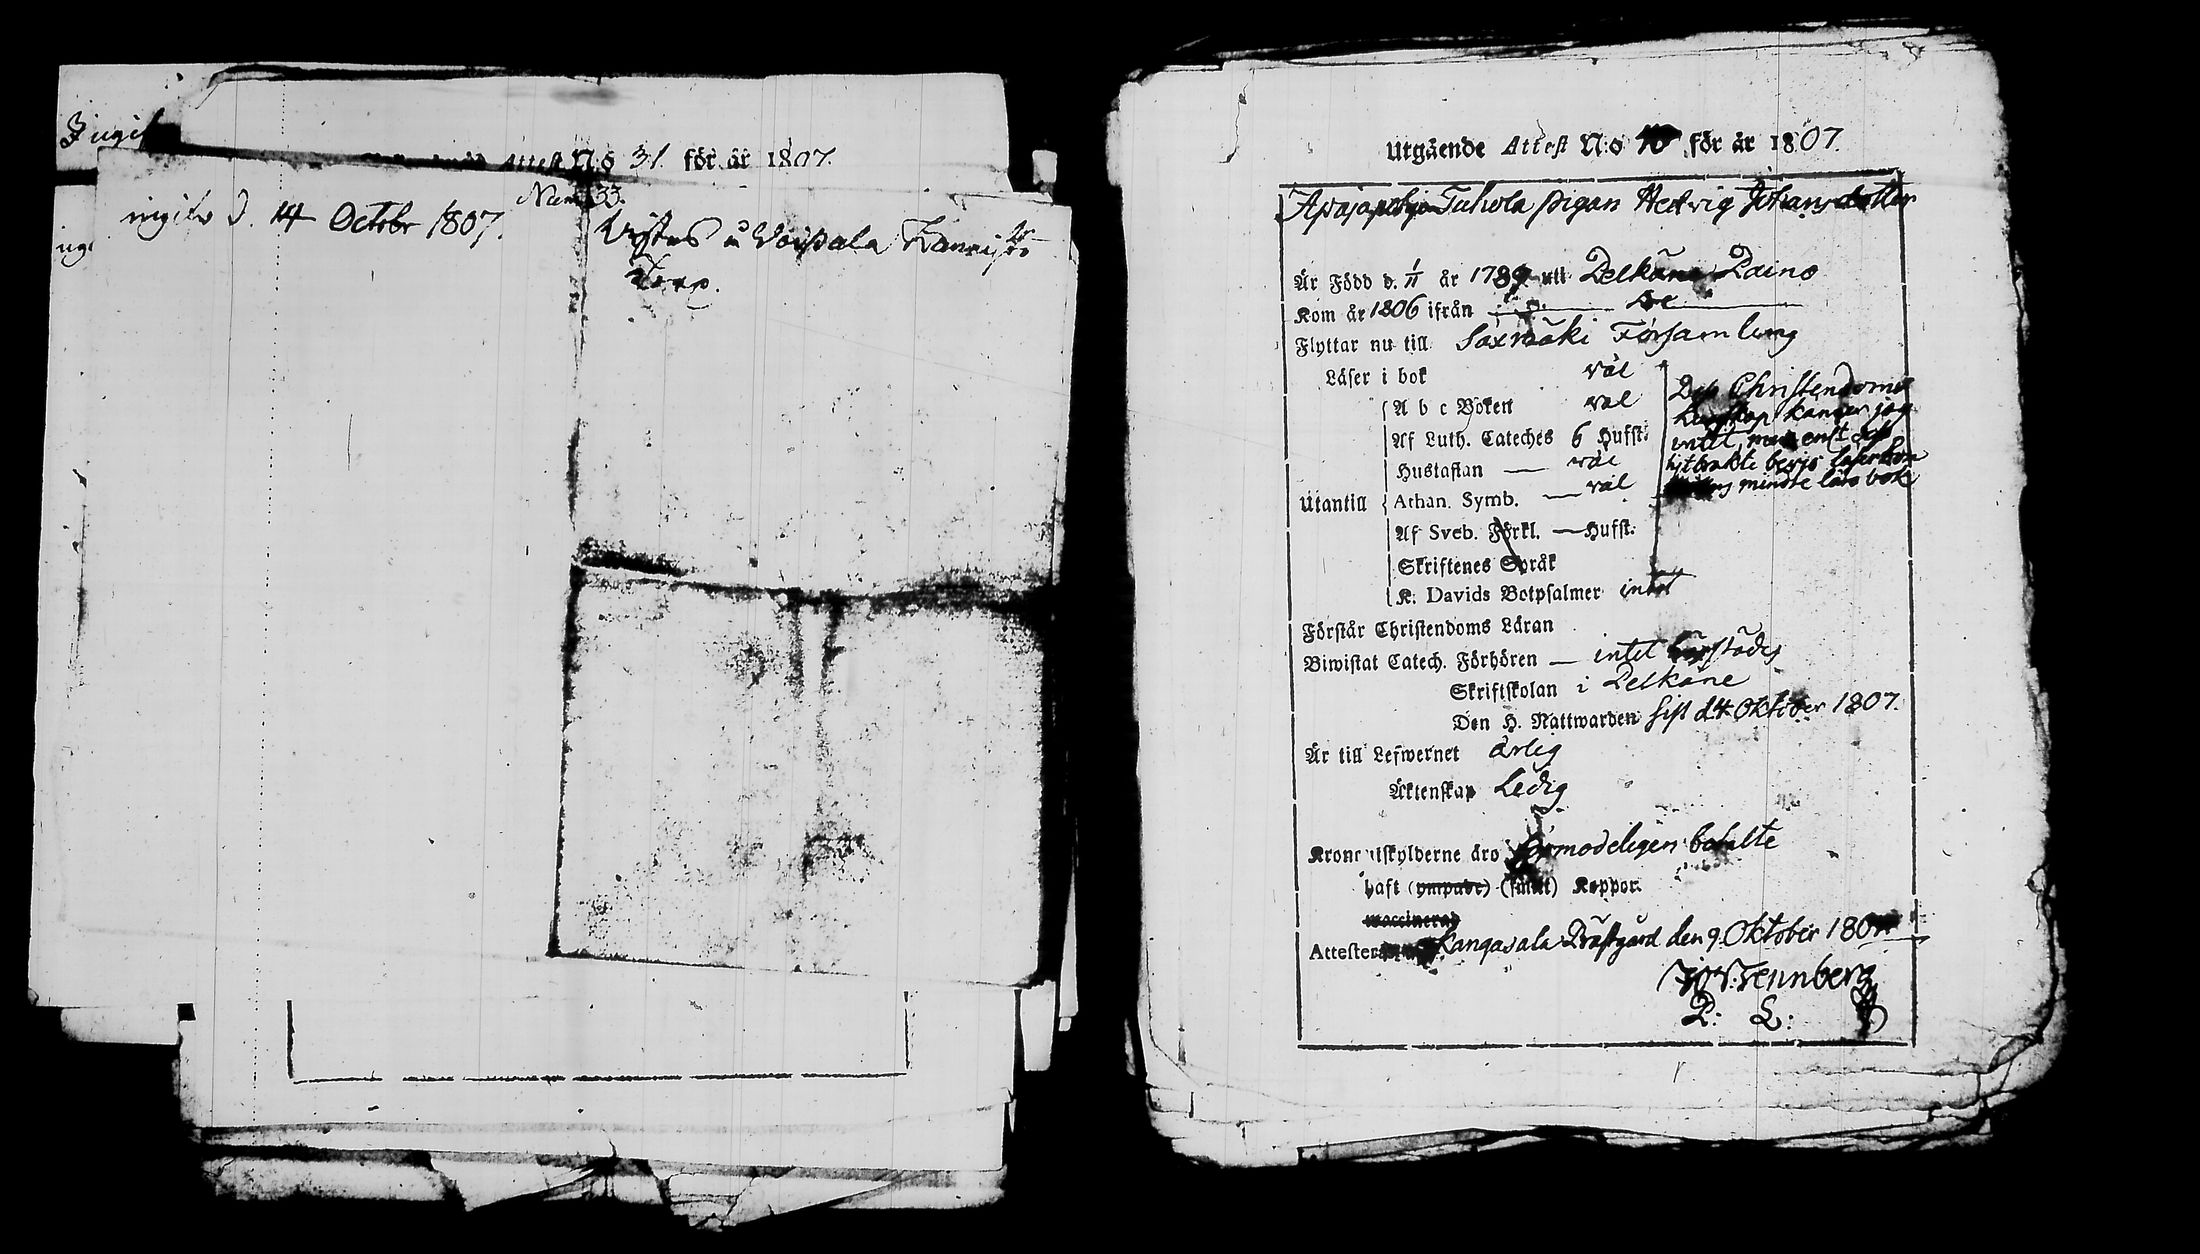 Attest N:o 31. för år 1807.
Num 33.
ingifv d. 14 Octobr 1807.
Torp.
Utgående Attest N:o för år 1807.
Tuhola pigan Hedvig Johansdotter
Är Född d. 1/11 år 1789 uti Pelkäne Paino
Kom år 1806 ifrån
Flyttar nu till Säxmäki Församling
Läser i bok väl
A b c Boken väl
Af Luth. Cateches 6 Hufst:
Hustaflan — väl
Utantill Athan. Symb. — väl
Af Sveb. Förkl. — Hufst.
Skriftenes Språk
K. Davids Botpsalmer intet
Des Christendoms
kunskap känner jag
intet, men enl
mindre läro bok
Förstår Christendoms Läran
Biwistat Catech. Förhören — intet härstädes
Skriftskolan i Pelkäne
Den H. Nattwarden sist d 4 Oktober 1807.
Är till Lefwernet ärlig
Äktenskap Ledig
Kronoutskylderne äro förmodeligen betalte
haft (ympade) (smitt) Koppor.
vaccinerad
Attesterar Kangasala Prästgård den 9. Oktober 1807
Wennberg
P: L: